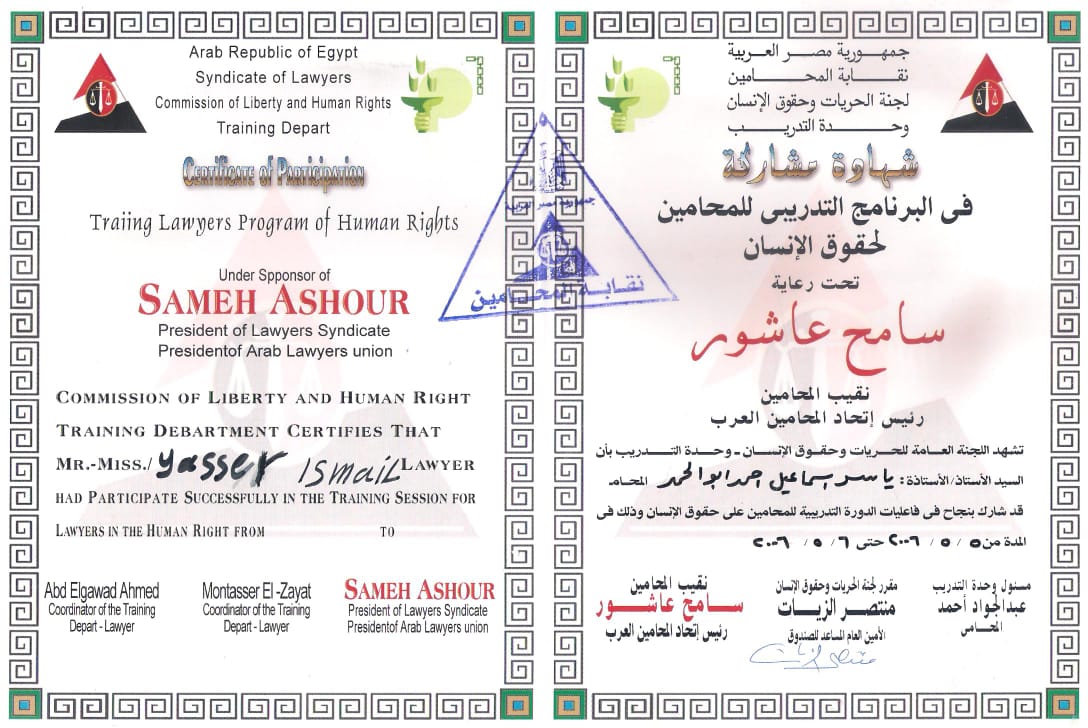 Arab Republic of Egypt
Syndicate of Lawyers
Commission of Liberty and Human Rights
Training Depart
Certificate of Participation
Traiing Lawyers Program of Human Rights
Under Spponsor of
SAMEH ASHOUR
President of Lawyers Syndicate
Presidentof Arab Lawyers union
COMMISSION OF LIBERTY AND HUMAN RIGHT
TRAINING DEBARTMENT CERTIFIES THAT
MR.-MISS./ yasser Ismail LAWYER
HAD PARTICIPATE SUCCESSFULLY IN THE TRAINING SESSION FOR
LAWYERS IN THE HUMAN RIGHT FROM TO
Abd Elgawad Ahmed
Coordinator of the Training
Depart - Lawyer
Montasser El -Zayat
Coordinator of the Training
Depart - Lawyer
SAMEH ASHOUR
President of Lawyers Syndicate
Presidentof Arab Lawyers union
جمهورية مصر العربية
نقابة المحامين
جمهورية مصر العربية
نقابة المحامين
لجنة الحريات وحقوق الإنسان
وحدة التدريب
شهادة مشاركة
فى البرنامج التدريبى للمحامين
لحقوق الإنسان
تحت رعاية
سامح عاشور
نقيب المحامين
رئيس إتحاد المحامين العرب
تشهد اللجنة العامة للحريات وحقوق الإنسان - وحدة التدريب بأن
السيد الأستاذ/الأستاذة : ياسر إسماعيل احمد ابوالحمد المحامـ
قد شارك بنجاح فى فاعليات الدورة التدريبية للمحامين على حقوق الإنسان وذلك فى
المدة من ٥ / ٥ / ٢٠٠٦ حتى ٦ / ٥ / ٢٠٠٦
مسئول وحدة التدريب
عبدالجواد أحمد
المحامى
مقرر لجنة الحريات وحقوق الإنسان
منتصر الزيات
الأمين العام المساعد للصندوق
نقيب المحامين
سامح عاشور
رئيس إتحاد المحامين العرب